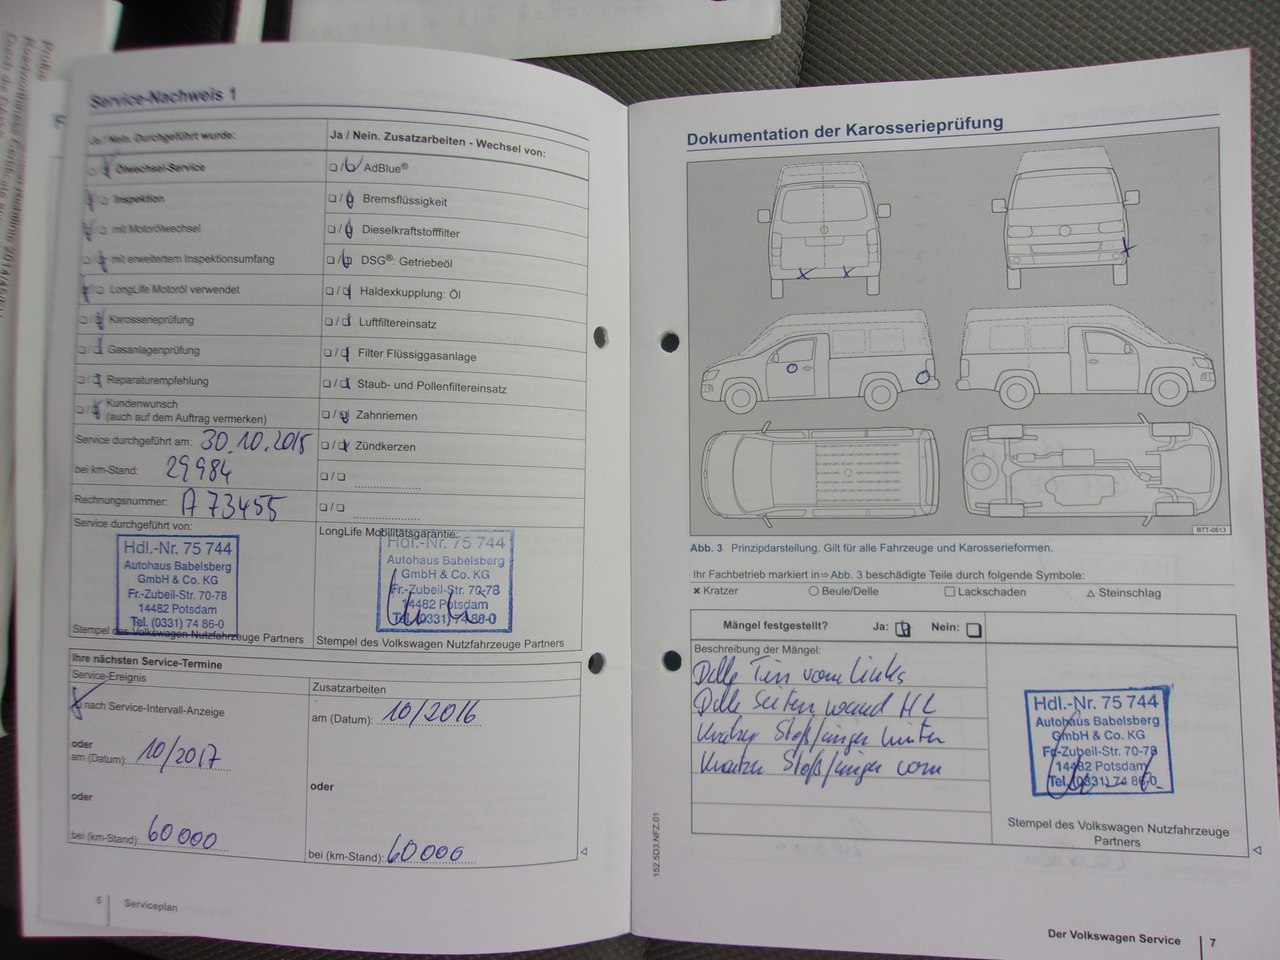 Service-Nachweis 1
Ja / Nein. Durchgeführt wurde:
Ölwechsel-Service
Inspektion
mit Motorölwechsel
mit erweitertem Inspektionsumfang
LongLife Motoröl verwendet
Karosserieprüfung
Gasanlagenprüfung
Reparaturempfehlung
Kundenwunsch
(auch auf dem Auftrag vermerken)
Service durchgeführt am: 30.10.2015
bei km-Stand: 29984
Rechnungsnummer: A 73455
Service durchgeführt von:
Hdl.-Nr. 75 744
Autohaus Babelsberg
GmbH & Co. KG
Fr.-Zubeil-Str. 70-78
14482 Potsdam
Tel. (0331) 74 86-0
Stempel des Volkswagen Nutzfahrzeuge Partners
Ja / Nein. Zusatzarbeiten - Wechsel von:
AdBlue®
Bremsflüssigkeit
Dieselkraftstofffilter
DSG®: Getriebeöl
Haldexkupplung: Öl
Luftfiltereinsatz
Filter Flüssiggasanlage
Staub- und Pollenfiltereinsatz
Zahnriemen
Zündkerzen
LongLife Mobilitätsgarantie:
Hdl.-Nr. 75 744
Autohaus Babelsberg
GmbH & Co. KG
Fr.-Zubeil-Str. 70-78
14482 Potsdam
Tel. (0331) 74 86-0
Stempel des Volkswagen Nutzfahrzeuge Partners
Ihre nächsten Service-Termine
Service-Ereignis
nach Service-Intervall-Anzeige
oder
am (Datum): 10/2017
oder
bei (km-Stand): 60000
Zusatzarbeiten
am (Datum): 10/2016
oder
bei (km-Stand): 60000
6 Serviceplan
Dokumentation der Karosserieprüfung
BTT-0513
Abb. 3 Prinzipdarstellung. Gilt für alle Fahrzeuge und Karosserieformen.
Ihr Fachbetrieb markiert in⇒Abb. 3 beschädigte Teile durch folgende Symbole:
× Kratzer ○ Beule/Delle □ Lackschaden △ Steinschlag
Mängel festgestellt? Ja: Nein:
Beschreibung der Mängel:
Delle Tür vorn links
Delle Seitenwand HL
Kratzer Stoßfänger hinten
Kratzer Stoßfänger vorn
Hdl.-Nr. 75 744
Autohaus Babelsberg
GmbH & Co. KG
Fr.-Zubeil-Str. 70-78
14482 Potsdam
Tel. (0331) 74 86-0
Stempel des Volkswagen Nutzfahrzeuge
Partners
152.5D3.NFZ.01
Der Volkswagen Service 7